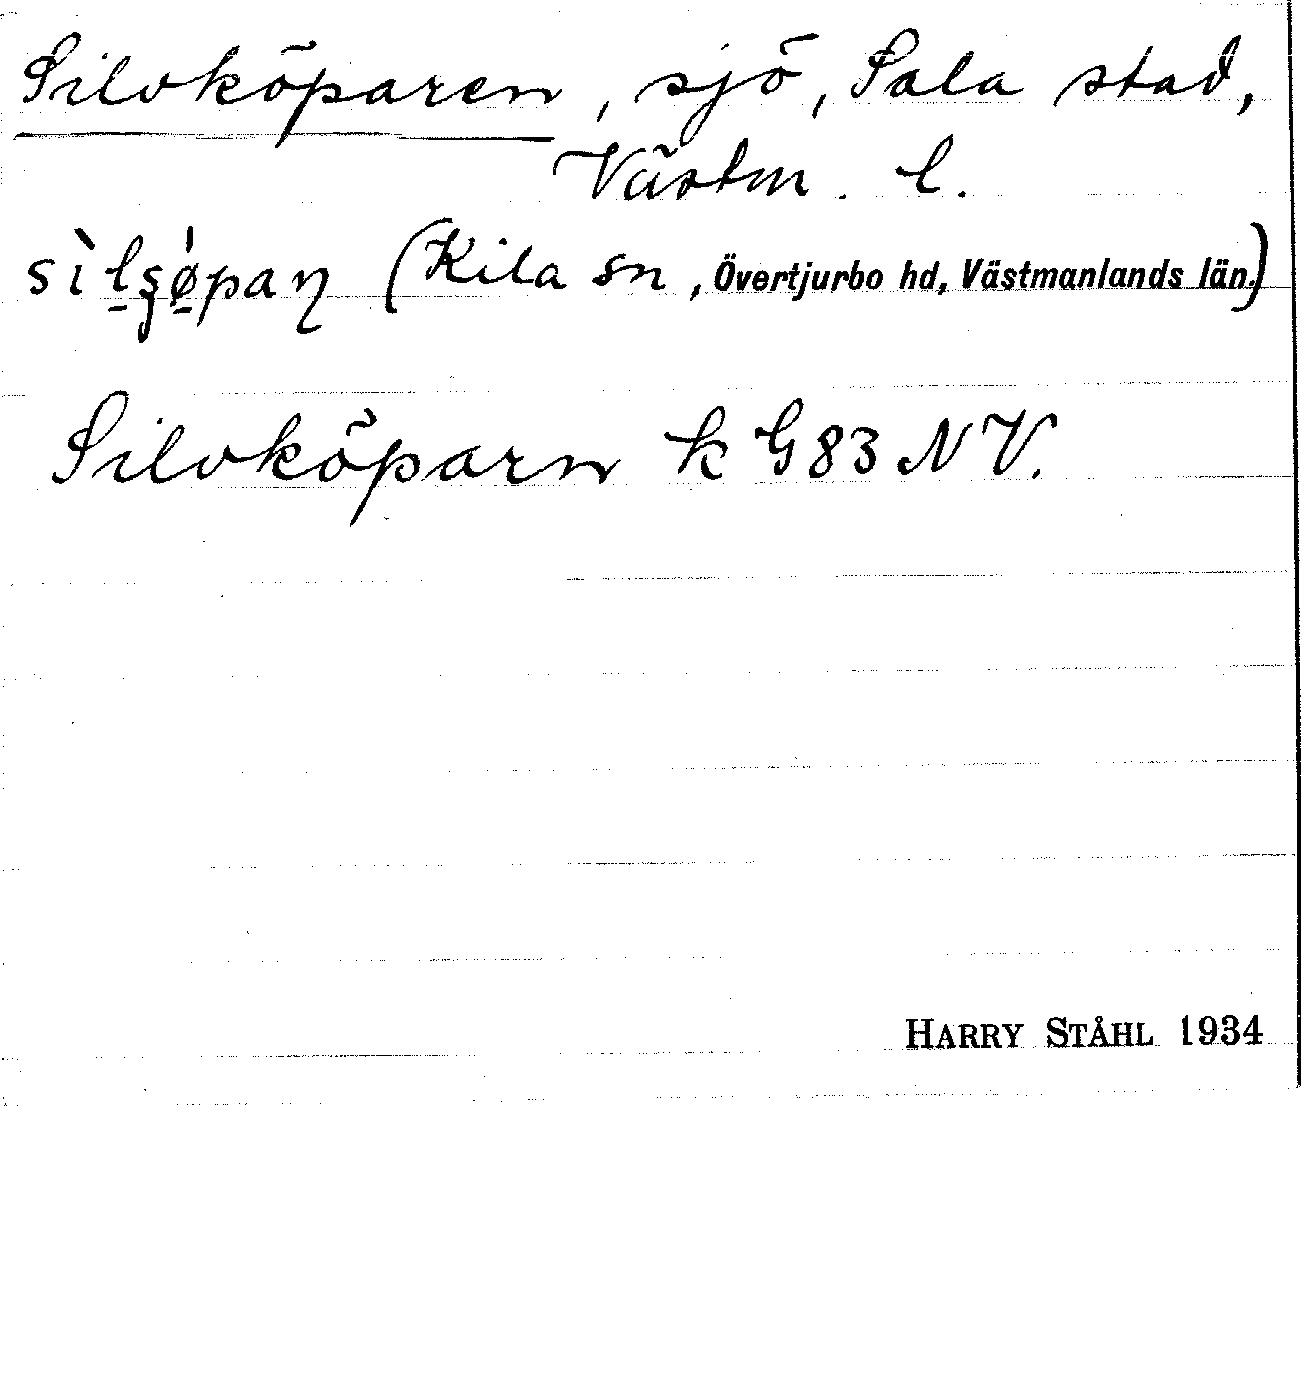 Silvköparen, sjö, Sala stad,
Västm. l.
(Kila sn, Övertjurbo hd, Västmanlands län.)
Silvköparn k G83 NV.
HARRY STÅHL 1934